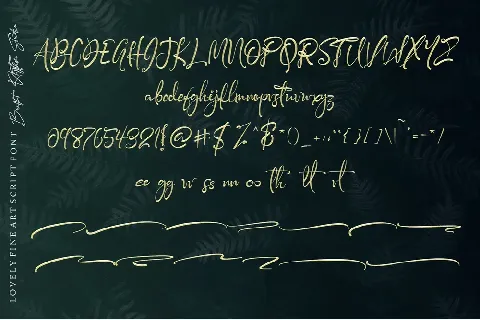 ABCDEGHIJKLMNOPQRSTUVWXYZ
abcdefghijklmnopqrstuvwxyz
0987654321!@#$%^&*()_+:;"{}[]|\~'=-*/
ee gg rr ss nn oo th tt rt
LOVELY FINE ART SCRIPT FONT